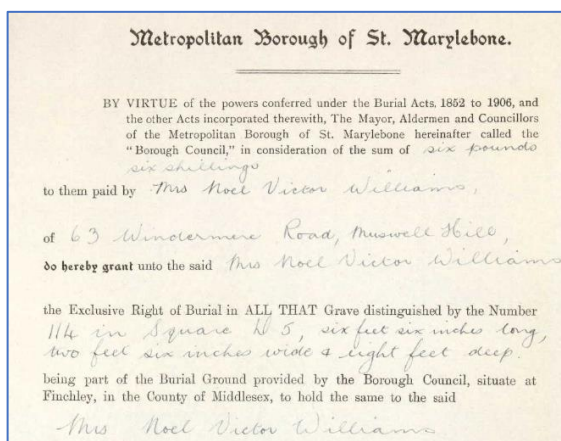 Metropolitan Borough of St. Marylebone.
BY VIRTUE of the powers conferred under the Burial Acts, 1852 to 1906, and
the other Acts incorporated therewith, The Mayor, Aldermen and Councillors
of the Metropolitan Borough of St. Marylebone hereinafter called the
"Borough Council," in consideration of the sum of six pounds
six shillings
to them paid by Mrs Noel Victor Williams,
of 63 Windermere Road, Muswell Hill,
do hereby grant unto the said Mrs Noel Victor Williams
the Exclusive Right of Burial in ALL THAT Grave distinguished by the Number
114 in Square D 5, six feet six inches long,
two feet six inches wide & eight feet deep.
being part of the Burial Ground provided by the Borough Council, situate at
Finchley, in the County of Middlesex, to hold the same to the said
Mrs Noel Victor Williams